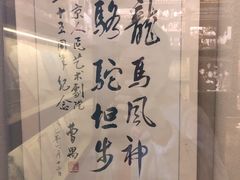 龍馬風神
駱駝坦步
京人民艺术劇院
十五周年纪念
曹禺